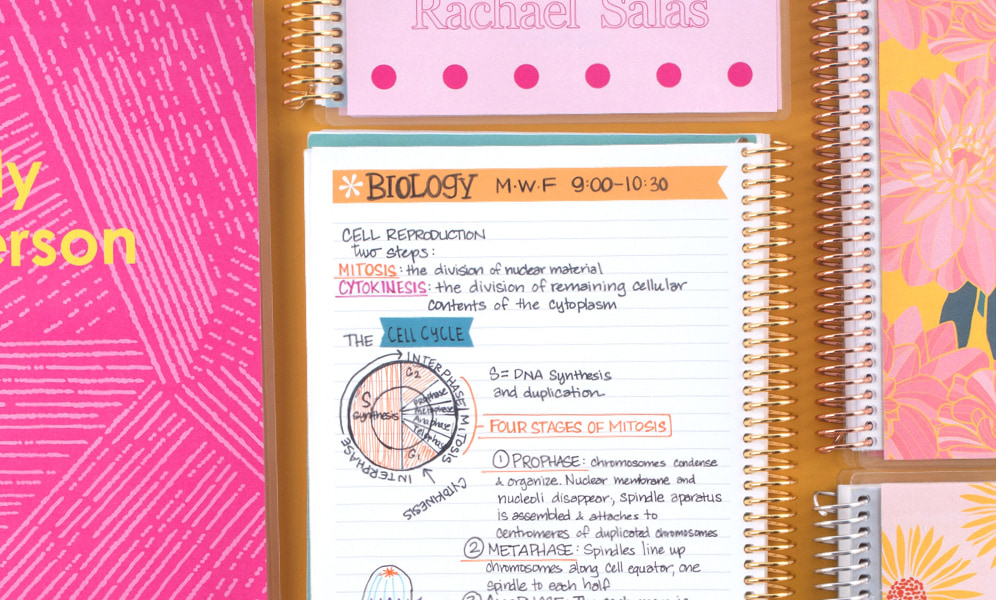 Rachael Salas
ly
erson
*BIOLOGY M·W·F 9:00-10:30
CELL REPRODUCTION
two steps:
MITOSIS: the division of nuclear material
CYTOKINESIS: the division of remaining cellular
contents of the cytoplasm
THE CELL CYCLE
INTERPHASE
G2
S
synthesis
prophase
Metaphase
Anaphase
Telophase
G1
MITOSIS
INTERPHASE
CYTOKINESIS
S= DNA Synthesis
and duplication
FOUR STAGES OF MITOSIS
① PROPHASE: chromosomes condense
& organize. Nuclear membrane and
nucleoli disappear, spindle apparatus
is assembled & attaches to
centromeres of duplicated chromosomes
② METAPHASE: Spindles line up
chromosomes along cell equator, one
spindle to each half